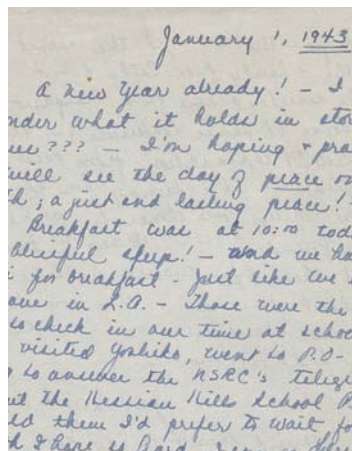 January 1, 1943
A new year already! - I
nder what it holds in stor
me??? - I'm hoping + pra
will see the day of peace on
th; a just and lasting peace!
Breakfast was at 10:00 tod
blissful sleep! - and we ha
i for breakfast - Just like we
ome in L.A. - Those were the
to check in our time at schoo
visited Yoshiko, went to P.O -
to answer the NSRC's teleg
ut the Hessian Hills School P
ld them I'd prefer to wait fo
I hear is Bard